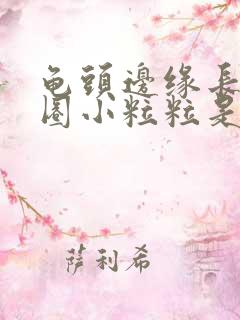 龟头邊缘長
圈小粒粒是
萨利希